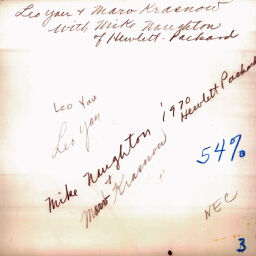 Leo Yau + Marv Krasnow
with Mike Naughton
of Hewlett-Packard
Leo Yau
Leo Yau
1970
Hewlett Packard
Mike Naughton
+
Marv Krasnow
54%
NEC
3